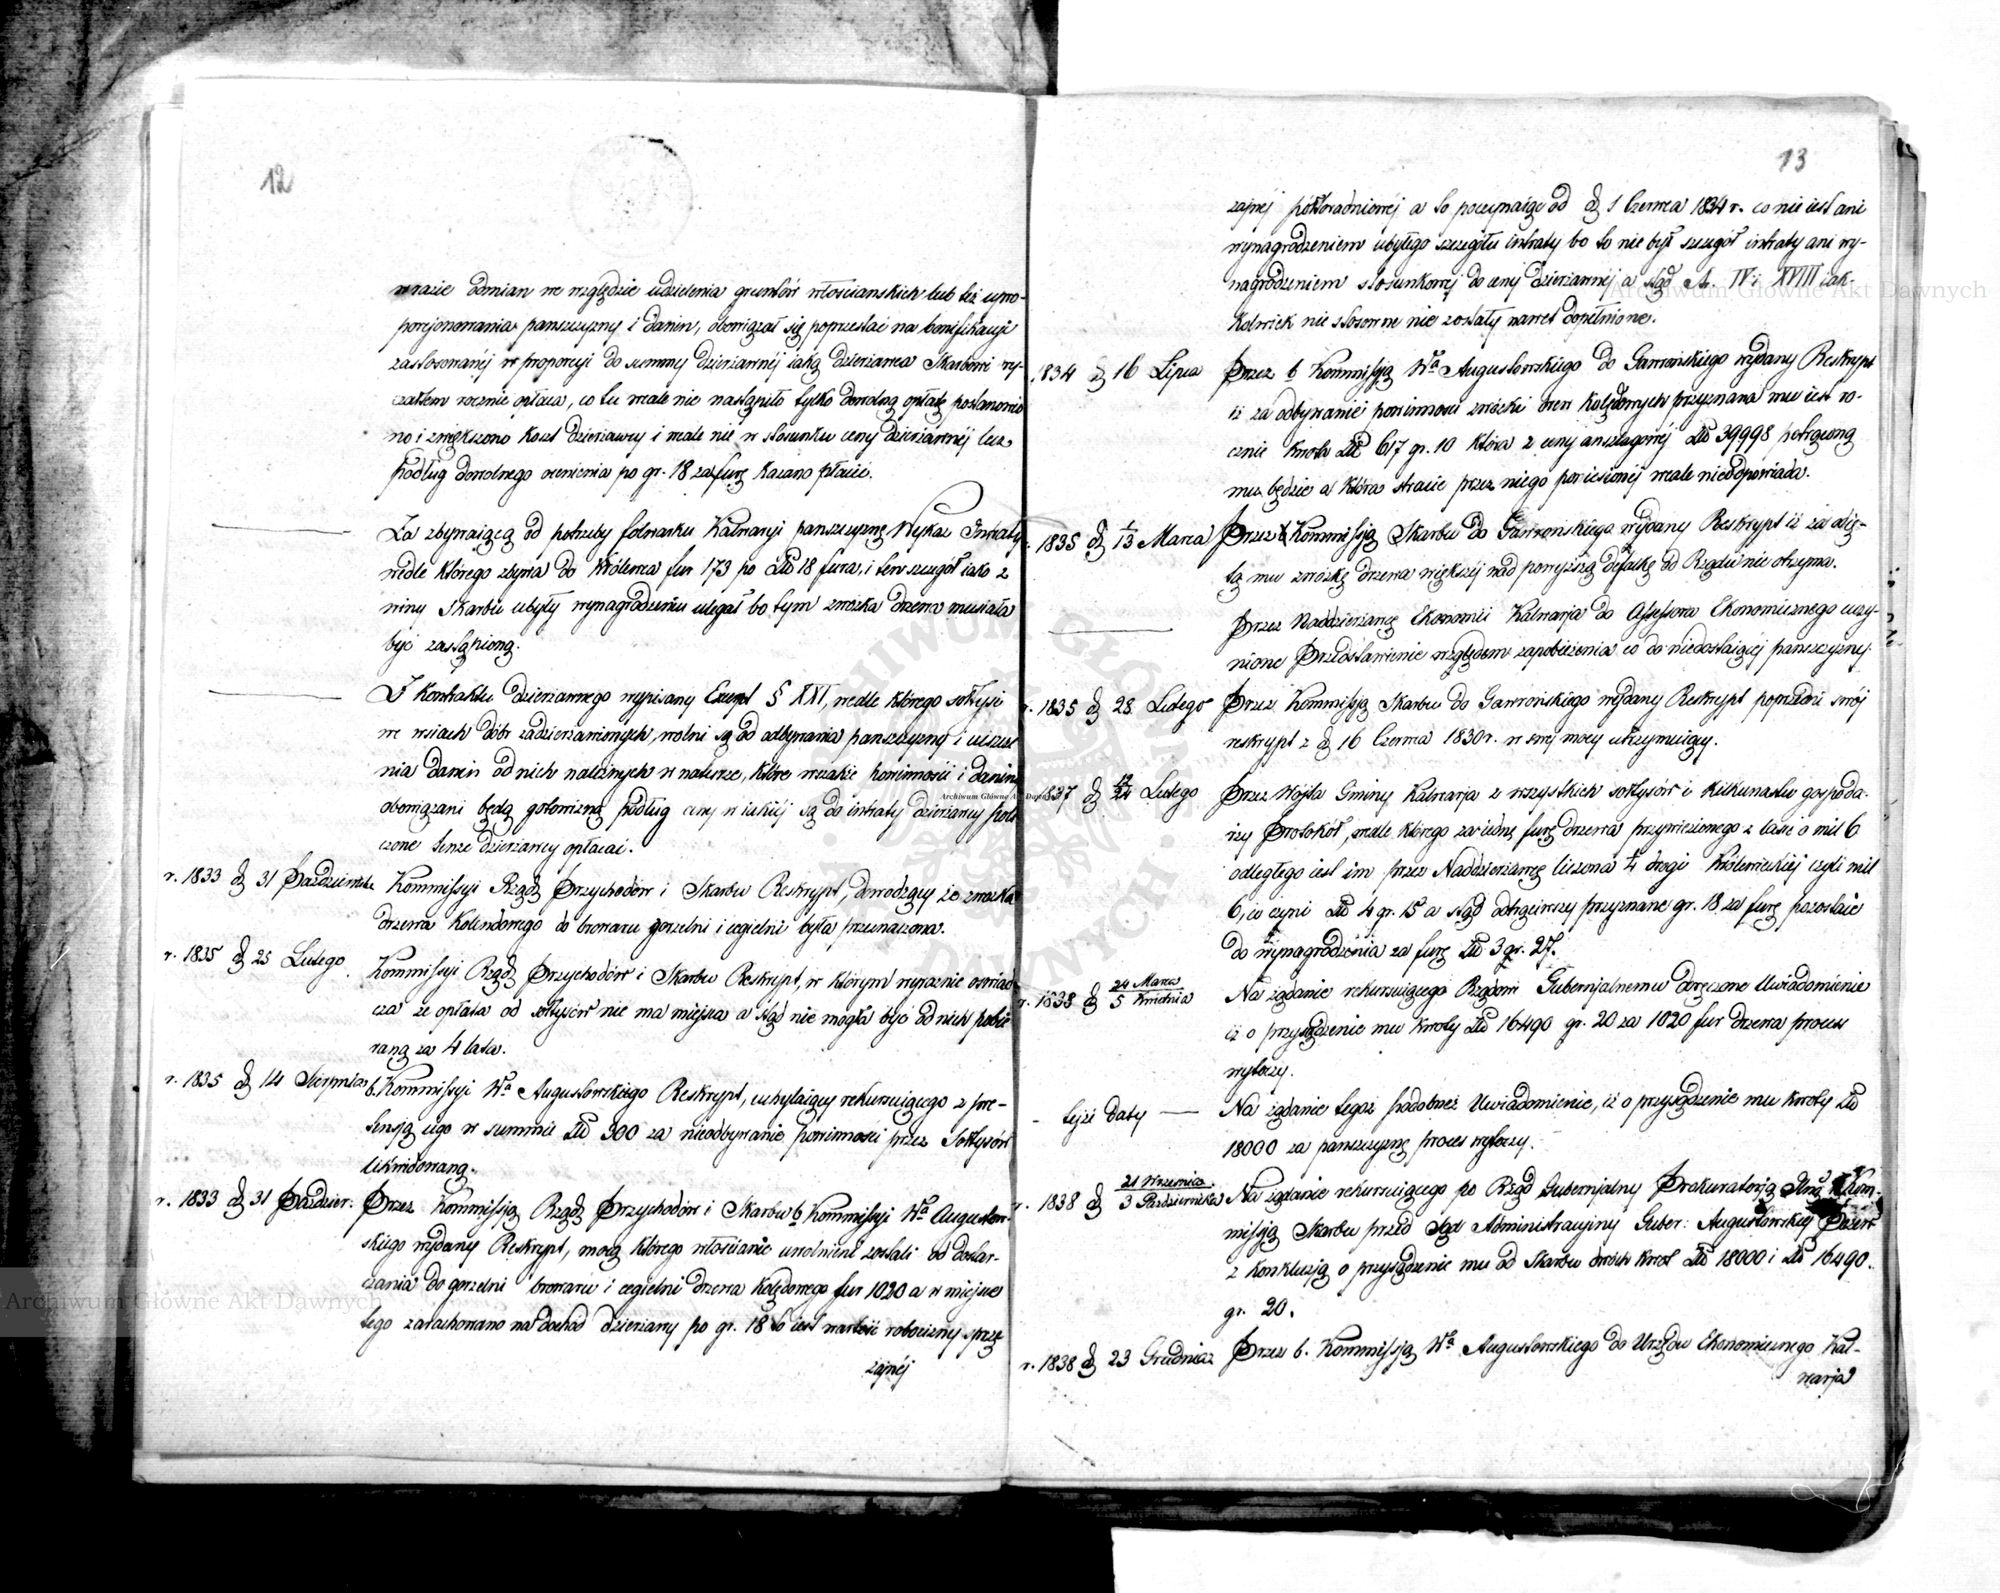 12
wrazie odmian we względzie udzielenia gruntów włościanskich lub też upro-
porcjonowania pańszczyzny i danin, obowiązał się poprzestać na bonifikacyi
zastosowanéj w proporcyi do summy dzierżawnéj iaką dzierżawca Skarbowi ry-
czałtem rocznie opłaca, co tu wcale nie nastąpiło tylko dowolną opłatę postanowio
no i zwiększono koszt dzierżawcy i wcale nie w stosunku ceny dzierżawnéj lecz
podług dowolnego ocenienia po gr. 18 za furę kazano płacić.
Za zbywaiącą od potrzeby folwarku Kalwaryi pańszczyznę Wykaz Intraty
wedle którego zbywa do Królewca fur 173 po Złł 18 fura, i ten szczegół iako z
winy Skarbu ubyły wynagrodzeniu ulegać bo tym zwózka drzewa musiała
być zastąpioną.
Z Kontraktu dzierżawnego wypisany Excerpt § XXI, wedle którego sołtysi
we wsiach dóbr zadzierżawionych, wolni są od odbywania pańszczyzny i uiszcze
nia danin od nich należnych w naturze, które wszakże powinności i daniny
obowiązani będą gotowizną podług ceny w iakiéj są do intraty dzierżawcy poli
czone tenże dzierżawcy opłacać.
r. 1833 d 31 Października Kommissyi Rządz Przychodów i Skarbu Reskrypt, dowodzący że zwózka
drzewa Kolendowego do browaru gorzelni i cegielni była przeznaczona.
r. 1835 d 25 Lutego Kommissyi Rządz Przychodów i Skarbu Reskrypt, w którym wyraznie oswiad
cza że opłata od sołtysów nie ma miejsca a ztąd nie mogła być od nich pobie
raną za 4 lata.
r. 1835 d 14 Sierpnia b. Kommissyi Wa Augustowskiego Reskrypt, uchylaiący rekursuiącego z pre-
tensją iego w summie Złł 300 za nieodbywanie powinności przez Sołtysów
likwidowaną.
r. 1833 d 31 Paździer: Przez Kommissją Rządz Przychodów i Skarbu b Kommissyi Wa Augustow-
skiego wydany Reskrypt, mocą którego włościanie uwolnieni zostali od dostar-
czania do gorzelni browaru i cegielni drzewa kolędowego fur 1020 a w miejsce
tego zarachowano na dochód dzierżawy po gr. 18 to iest wartość robocizny sprzę
zajnéj
13
zajnej półtoradniowéj a to poczynaiąc od d 1 Czerwca 1834 r. co nie iest ani
wynagrodzeniem ubyłego szczegółu intraty bo to nie był szczegół intraty ani wy-
nagrodzeniem stosunkowéj do ceny dzierżawnéj a ztąd IV i XVIII iak-
kolwiek nie stosowne nie zostały nawet dopełnione.
1834 d 16 Lipca Przez b Kommissją Wa Augustowskiego do Gawrońskiego wydany Reskrypt
iż za odbywanie powinności zwózki drew kolędowych przyznana mu iest ro-
cznie kwota Złł 617 gr. 10 która z ceny anszlagowéj Złł 39998 potrąconą
mu będzie a która stracie przez niego poniesionéj wcale nieodpowiada.
r. 1835 d 1/13 Marca Przez b Kommissją Skarbu do Gawrońskiego wydany Reskrypt iż za odię-
tą mu zwózkę drzewa większéj nad powyższą defalkę od Rządu nie otrzyma.
Przez Naddzierżawcę Ekonomii Kalwarja do Assessora Ekonomicznego uczy-
nione Przedstawienie względem zapobieżenia co do niedostaiącéj pańszczyzny.
r. 1835 d 28 Lutego Przez Kommissją Skarbu do Gawrońskiego wydany Reskrypt poprzedni swój
reskrypt z d 16 Czerwca 1830 r. w swéj mocy utrzymuiący.
1837 d 12/24 Lutego Przez Wójta Gminy Kalwarja z wszystkich sołtysów i kilkunastu gospoda-
rzy Protokół, wedle którego za iedną furę drzewa przywiezionego z lasu o mil 6
odległego iest im przez Naddzierżawcę liczona 1/4 drogi Królewieckiéj czyli mil
6, co czyni Złł 4 gr. 15 a ztąd odtrąciwszy przyznane gr. 18 za furę pozostaie
do wynagrodzenia za furę Złł 3 gr. 27.
r. 1838 d 24 Marca/5 Kwietnia Na żądanie rekursuiącego Rządowi Gubernjalnemu doręczone Uwiadomienie
iż o przysądzenie mu kwoty Złł 16490 gr. 20 za 1020 fur drzewa proces
wytoczy.
- tejże daty — Na żądanie tegoż podobneż Uwiadomienie, iż o przysądzenie mu kwoty Złł
18000 za pańszczyznę proces wytoczy.
r. 1838 d 21 Września/3 Października Na żądanie rekursuiącego po Rząd Gubernjalny Prokuratorją Kom-
missją Skarbu przed Sąd Administracyiny Guber: Augustowskiéj Pozew
z konkluzją o przysądzenie mu od Skarbu dwóch kwot Złł 18000 i Złł 16490.
gr. 20.
r. 1838 d 23 Grudnia Przez b. Kommissją Wa Augustowskiego do Urzędu Ekonomicznego Kal-
warja
Archiwum Główne Akt Dawnych
Archiwum Główne Akt Dawnych
Archiwum Główne Akt Dawnych